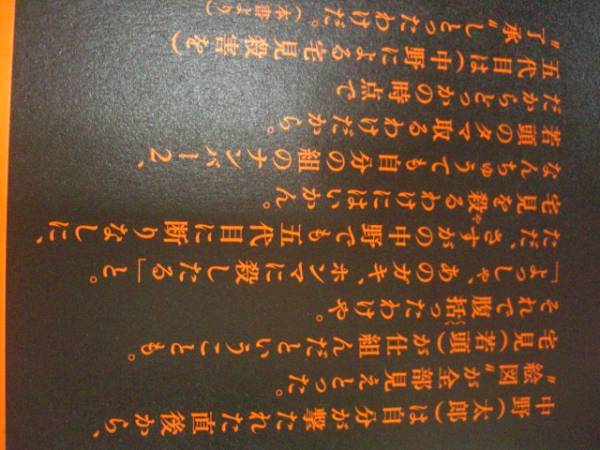 中野(太郎)は自分が撃たれた直後から、
〝絵図〟が全部見えとった。
宅見(若頭)が仕組んだということも。
それで腹括ったわけや。
「よっしゃ、あのガキ、ホンマに殺したる」と。
ただ、さすがの中野でも五代目に断りなしに、
宅見を殺るわけにはいかん。
なんちゅうても自分の組のナンバー2、
若頭のタマ取るわけだから。
だからどっかの時点で
五代目は(中野による)宅見殺害を
〝了承〟しとったわけだ。(本書より)